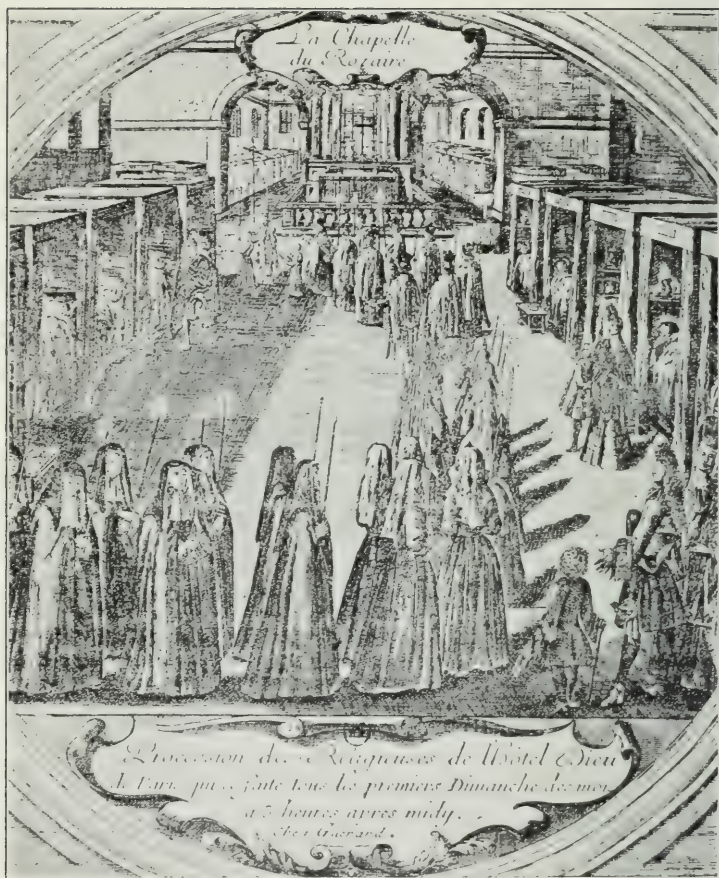 La Chapelle
du Rozaire
Procession des Religieuses de l'hôtel Dieu
de Paris qui se faite tous les premiers Dimanche des mois
a 5 heures apres midy.